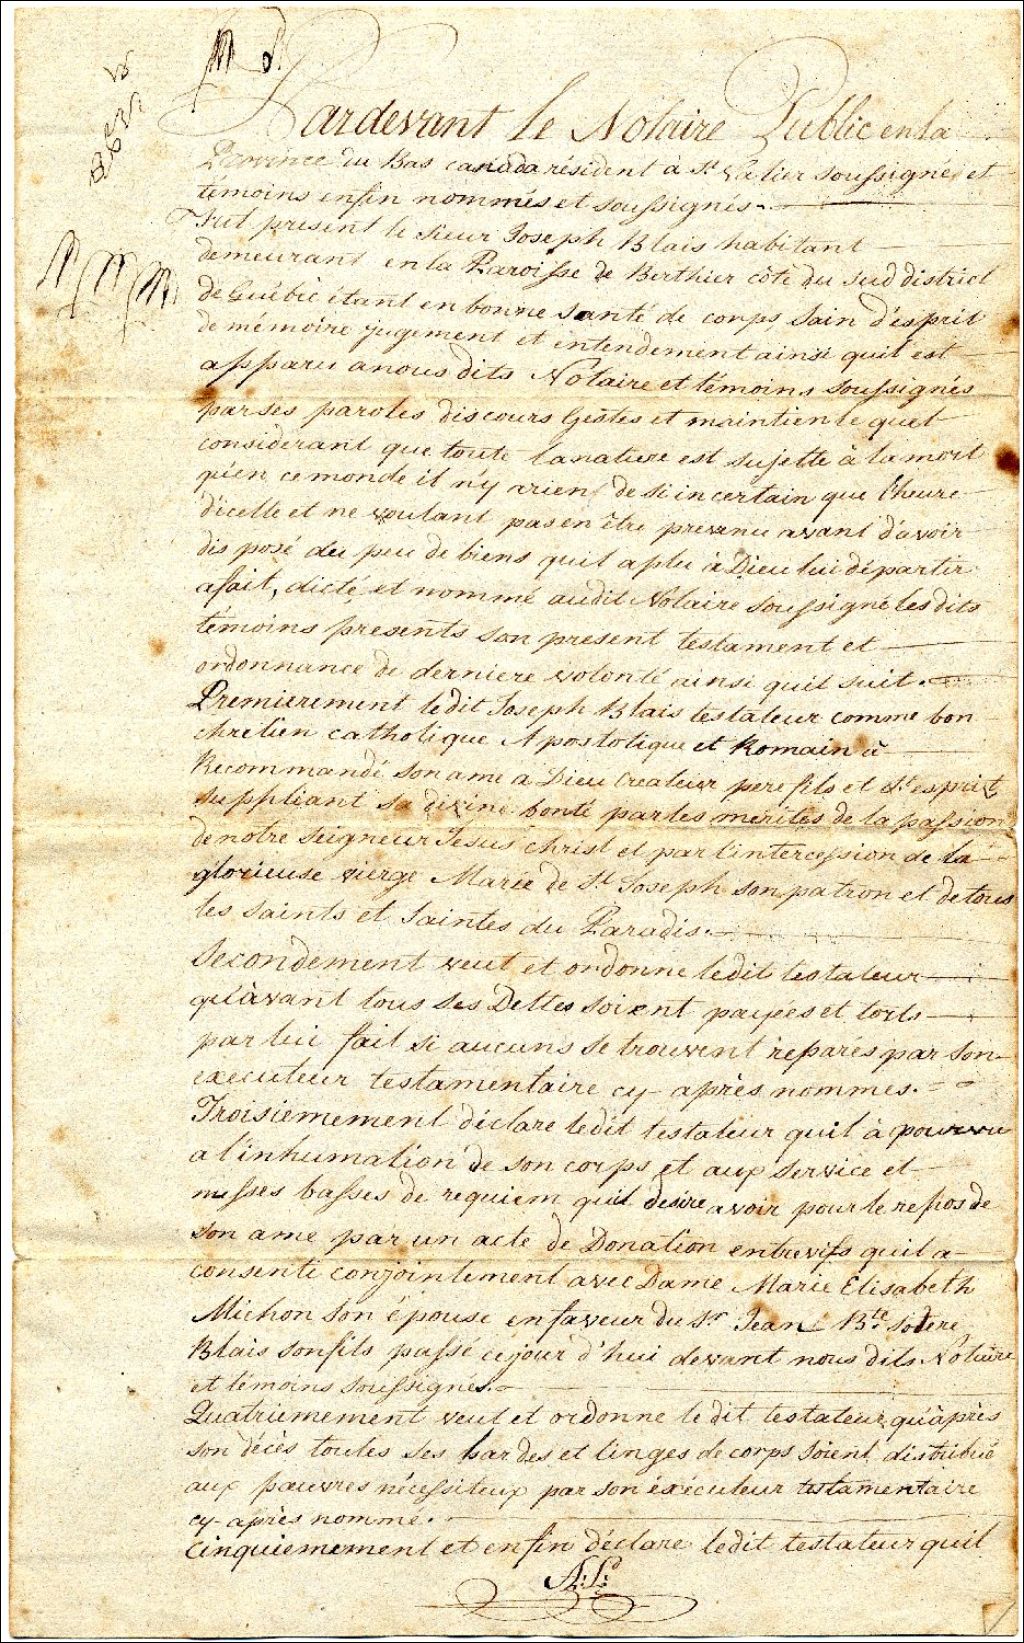 Pardevant le Notaire Public en la
Province du Bas canada résident à St. Valier soussigné et
témoins enfin nommés et soussignés.
Fut present le sieur Joseph Blais habitant
demeurant en la Paroisse de Berthier côte du sud district
de Québec étant en bonne santé de corps Sain d'esprit
de mémoire jugement et entendement ainsi quil est
apparu anous dits Notaire et témoins soussignés
par ses paroles discours Gestes et maintien le quel
considerant que toute lanature est sujette à la mort
qu'en ce monde il n'y arien de si incertain que l'heure
d'icelle et ne voulant pas en être prevenu avant d'avoir
dis posé du peu de biens quil a plu à Dieu lui départir
afait, dicté, et nommé audit Notaire soussigné les dits
témoins presents son present testament et
ordonnance de derniere volonté ainsi quil suit.
Premierement ledit Joseph Blais testateur comme bon
chretien catholique Apostolique et Romain à
Recommandé son ame a Dieu Createur pere fils et St. esprit
suppliant sa divine bonté par les merites de la passion
de notre Seigneur Jesus Christ et par l'intercession de la
glorieuse vierge Marie de St. Joseph son patron et de tous
les saints et Saintes du Paradis.
Secondement veut et ordonne ledit testateur
qu'avant tous ses Dettes soient payées et torts
par lui fait si aucuns se trouvent réparés par son
executeur testamentaire cy-après nommes.
Troisiemement déclare ledit testateur quil à pourvu
a l'inhumation de son corps et aux service et
messes basses de requiem quil desire avoir pour le repos de
son ame par un acte de Donation entrevifs quil a
consenti conjointement avec Dame Marie Elisabeth
Michon son épouse en faveur du Sr. Jean Bte.
Blais son fils passé cejour d'hui devant nous dits Notaire
et témoins soussignés.
Quatriemement veut et ordonne le dit testateur qu'après
son décès toutes ses hardes et linges de corps soient distribué
aux pauvres nécessiteux par son éxécuteur testamentaire
cy-après nommé.
Cinquiemement et enfin déclare ledit testateur quil
A: L: